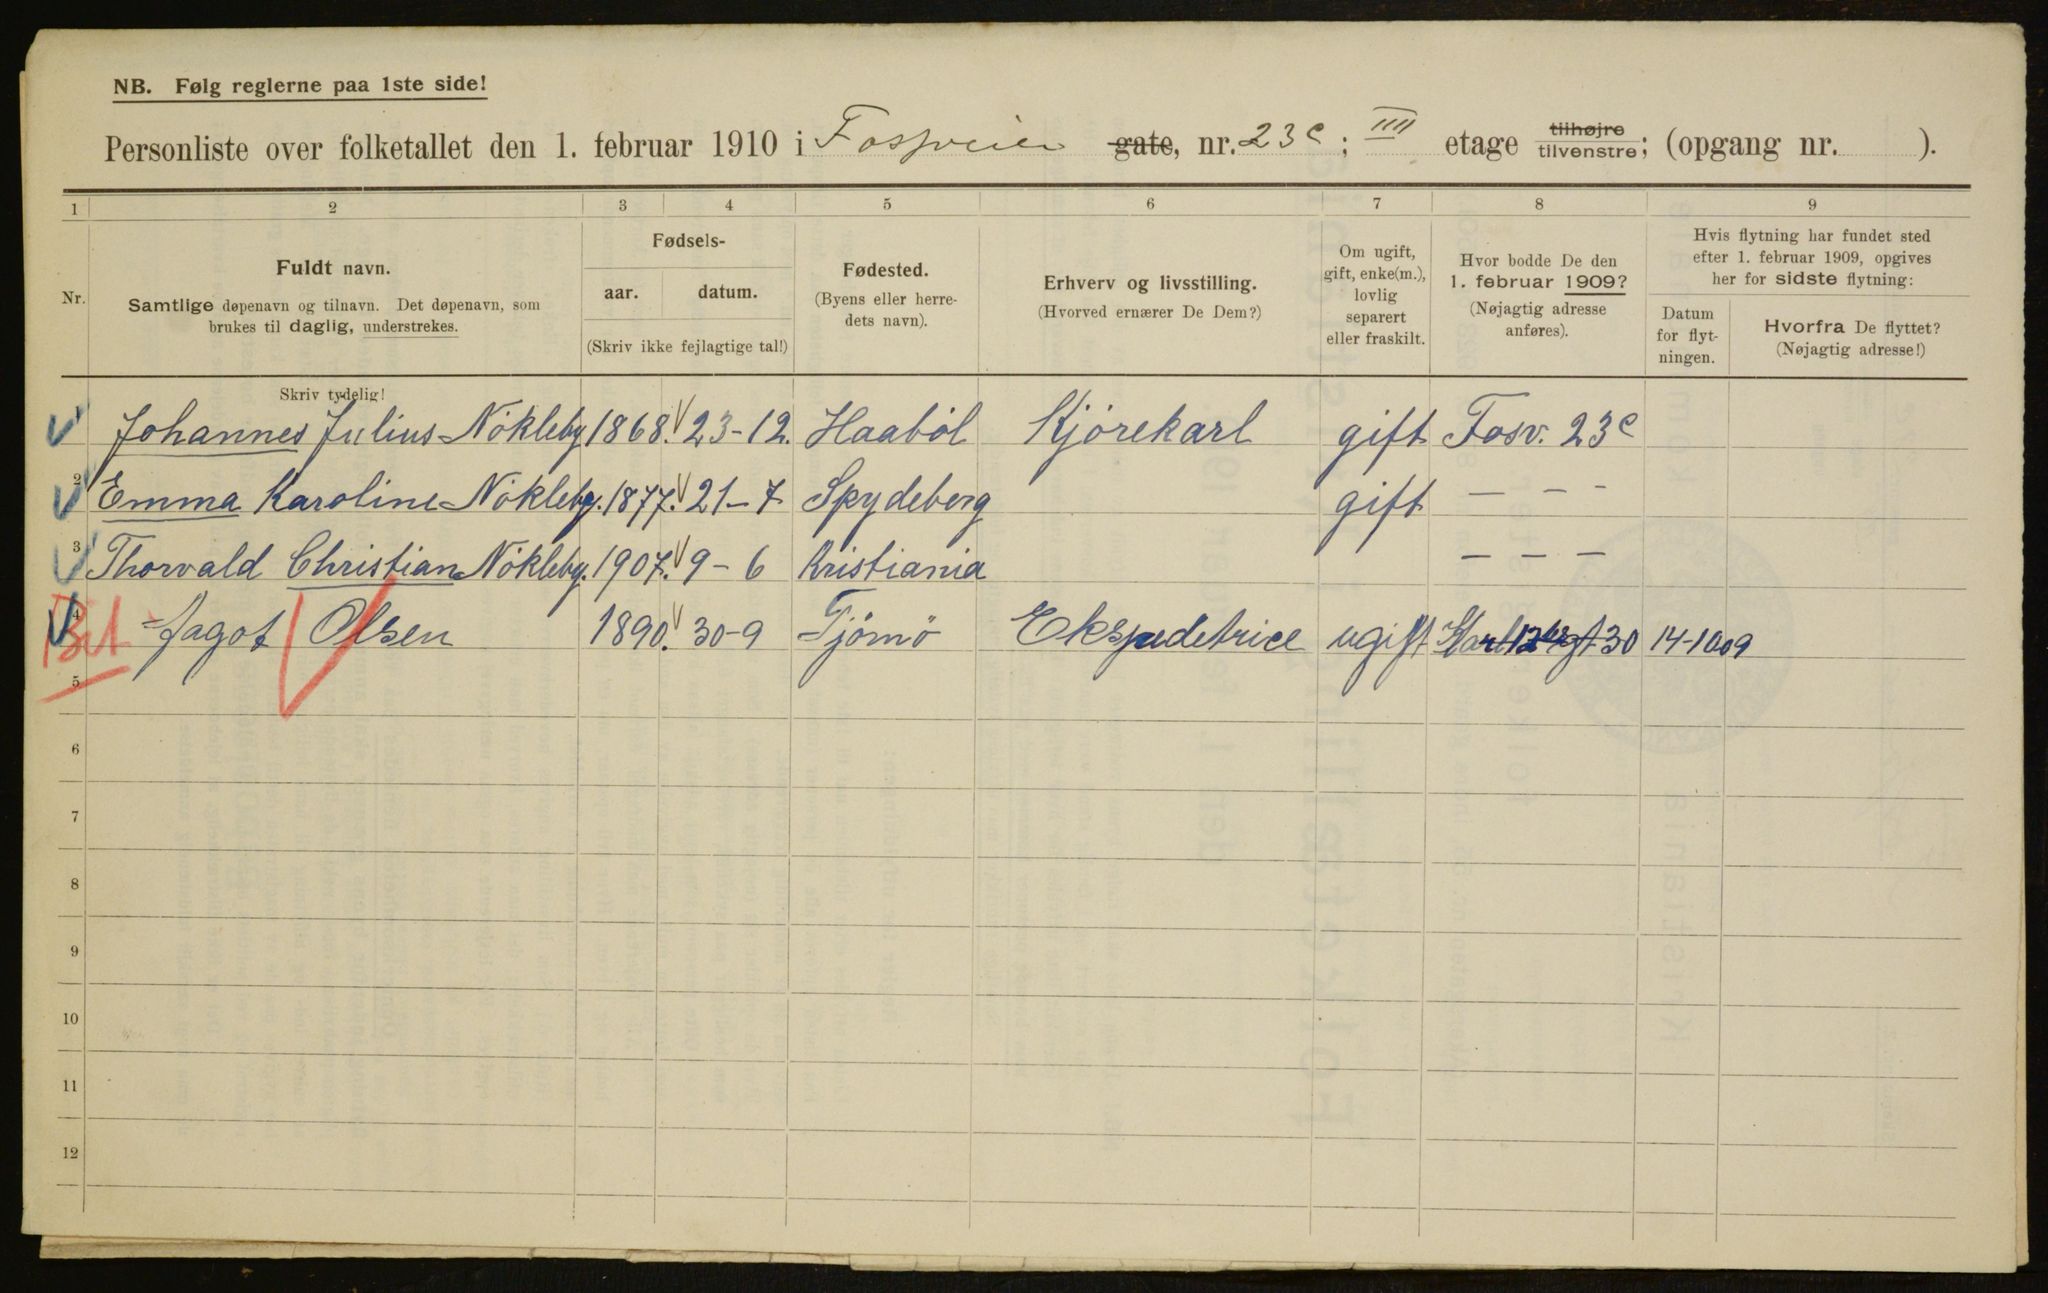 NB. Følg reglerne paa 1ste side!
Personliste over folketallet den 1. februar 1910 i Fossveien gate, nr. 23c; IIII etage tilhøjre tilvenstre; (opgang nr. ).
1 2 3 4 5 6 7 8 9
Nr.
Fuldt navn.
Samtlige døpenavn og tilnavn. Det døpenavn, som
brukes til daglig, understrekes.
Fødsels-
aar. datum.
(Skriv ikke fejlagtige tal!)
Fødested.
(Byens eller herre-
dets navn).
Erhverv og livsstilling.
(Hvorved ernærer De Dem?)
Om ugift,
gift, enke(m.),
lovlig
separert
eller fraskilt.
Hvor bodde De den
1. februar 1909?
(Nøjagtig adresse
anføres).
Hvis flytning har fundet sted
efter 1. februar 1909, opgives
her for sidste flytning:
Datum
for flyt-
ningen.
Hvorfra De flyttet?
(Nøjagtig adresse!)
Skriv tydelig!
Johannes Julius Nökleby 1868. 23-12. Haaböl Kjörekarl gift Fosv. 23c
2 Emma Karoline Nökleby. 1877. 21-7 Spydeberg gift — — -
3 Thorvald Christian Nökleby. 1907. 9-6 Kristiania — — —
4 Olsen 1890. 30-9 Tjömö Ekspeditrice ugift 30 14-10 09
5
6
7
8
9
10
11
12